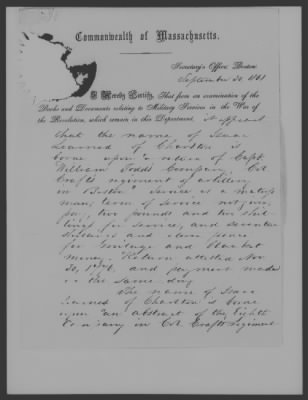 Commonwealth of Massachusetts.
Secretary's Office, Boston
September 30 1861
I Hereby Certify, That from an examination of the
Books and Documents relating to Military Services in the War of
the Revolution, which remain in this Department, it appears
that the name of Isaac
Learned of Charlton is
borne upon a return of Capt.
William Todds Company, Col
Crafts regiment of artillery
in Boston Service as a matross
man; term of service not given
pay, two pounds and two shil-
lings for service, and seventeen
shillings and
for and blanket
money. Return attested Nov
30, and payment made
on the same day
The name of Isaac
Learned of Charlton is borne
upon an abstract of the Eighth
Company in Col Crafts regiment